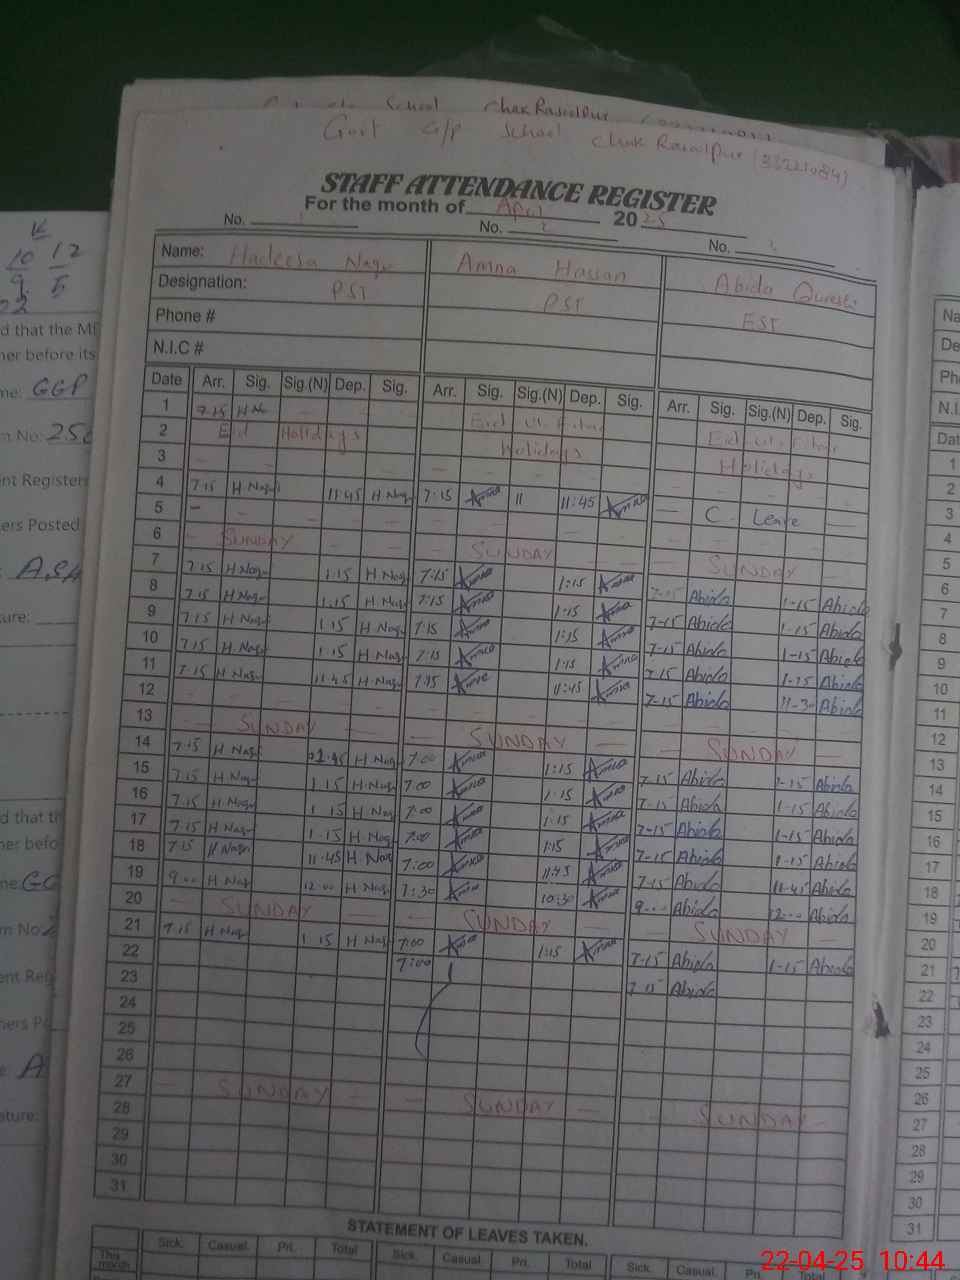 School Chak Rasoolpur
Govt G/P School Chak Rasoolpur
STAFF ATTENDANCE REGISTER
For the month of April 2025
No. 1 No. 2 No.
Name: Hadeesa Naqvi Amna Hassan Abida
Designation: PST PST EST
Phone #
N.I.C #
Date Arr. Sig. Sig.(N) Dep. Sig. Arr. Sig. Sig.(N) Dep. Sig. Arr. Sig. Sig.(N) Dep. Sig.
1 7.15
2 Eid Holidays Eid Ul Holidays Eid Ul Holidays
3
4 7.15 H Naqvi 11:45 H Naqvi 7:15 Amna 11 11:45 Amna
5 C. Leave
6 SUNDAY SUNDAY SUNDAY
7 7.15 H Naqvi 1.15 H Naqvi 7:15 Amna 1:15 Amna 7-15 Abida 1-15 Abida
8 7.15 H Naqvi 1.15 H Naqvi 7:15 Amna 1:15 Amna 7-15 Abida 1-15 Abida
9 7.15 H Naqvi 1.15 H Naqvi 7:15 Amna 1:15 Amna 7-15 Abida 1-15 Abida
10 7.15 H Naqvi 1.15 H Naqvi 7:15 Amna 1:15 Amna 7-15 Abida 1-15 Abida
11 7.15 H Naqvi 11.45 H Naqvi 7:15 Amna 11:45 Amna 7-15 Abida 11-30 Abida
12
13 SUNDAY SUNDAY SUNDAY
14 7.15 H Naqvi H Naqvi 7:00 Amna 1:15 Amna 7-15 Abida 1-15 Abida
15 7.15 H Naqvi 1.15 H Naqvi 7:00 Amna 1:15 Amna 7-15 Abida 1-15 Abida
16 7.15 H Naqvi 1.15 H Naqvi 7:00 Amna 1:15 Amna 7-15 Abida 1-15 Abida
17 7.15 H Naqvi 1.15 H Naqvi 7:00 Amna 1:15 Amna 7-15 Abida 1-15 Abida
18 7.15 H Naqvi 11.45 H Naqvi 7:00 Amna 11:45 Amna 7-15 Abida 11-45 Abida
19 9.00 H Naqvi 12.00 H Naqvi 7:30 Amna 10:30 Amna 9-- Abida 12-- Abida
20 SUNDAY SUNDAY SUNDAY
21 7.15 H Naqvi 1.15 H Naqvi 7:00 Amna 1:15 Amna 7-15 Abida 1-15 Abida
22 7:00 7-15 Abida
23
24
25
26
27 SUNDAY SUNDAY SUNDAY
28
29
30
31
STATEMENT OF LEAVES TAKEN.
Sick. Casual. Pri. Total Sick. Casual. Pri. Total Sick. Casual. Pri.
This month
22-04-25 10:44